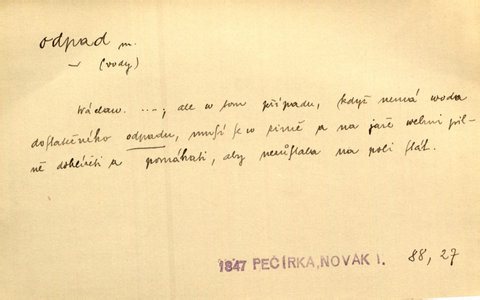 odpad m.
~ (vody)
Wáclaw. ...., ale w tom případu, když nemá woda
dostatečného odpadu, musí se w zimě a na jaře welmi pil-
ně dohlížeti a pomáhati, aby nezůstala na poli stát.
1847 PEČÍRKA, NOVÁK I. 88, 27